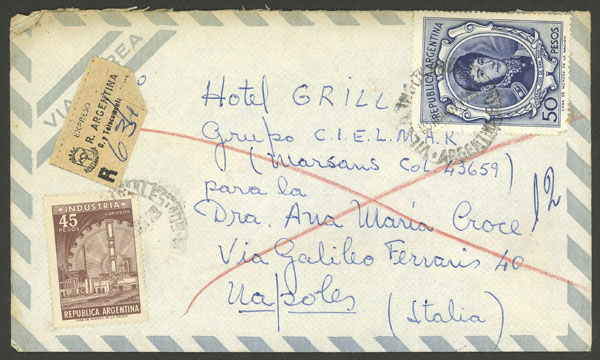 VIA AEREA
EXPRESO
R. ARGENTINA
C. y Telecomunic.
R 631
REPUBLICA ARGENTINA
50 PESOS
CASA DE MONEDA DE LA NACION
Hotel GRILL
Grupo C.I.E.L.M.A.R
(Marsans Col 43659)
para la
Dra. Ana María Croce
12
Via Galileo Ferraris 40
Napoles (Italia)
INDUSTRIA
45 PESOS
CORREOS
REPUBLICA ARGENTINA